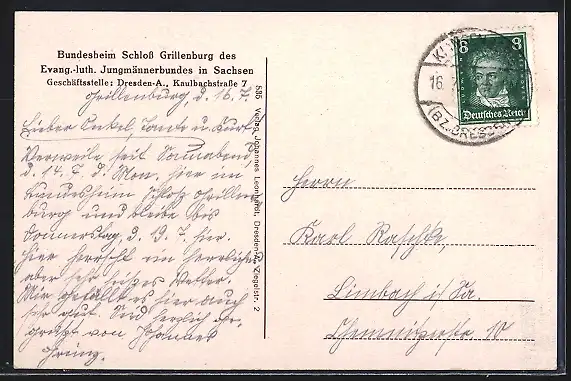 Bundesheim Schloß Grillenburg des
Evang.-luth. Jungmännerbundes in Sachsen
Geschäftsstelle: Dresden-A., Kaulbachstraße 7
Grillenburg, d. 16. 7.
Lieber Onkel, Tante u. Kurt!
Verweile seit Sonnabend,
d. 14. 7. d. Mon. hier im
Bundesheim Schloß Grillen-
burg und bleibe bis
Donnerstag, d. 19. 7. hier.
Hier herrscht ein herrliches
aber sehr heißes Wetter.
Mir gefällt es hier auch
sehr gut. Seid herzlich ge-
grüßt von Johannes
585 Verlag Johannes Leonhardt, Dresden-A., Ziegelstr. 2
8 8
Deutsches Reich
16
(BZ. DRESD
Herrn
Karl Raschke,
Limbach i/Sa.
Chemnitzerstr. 10